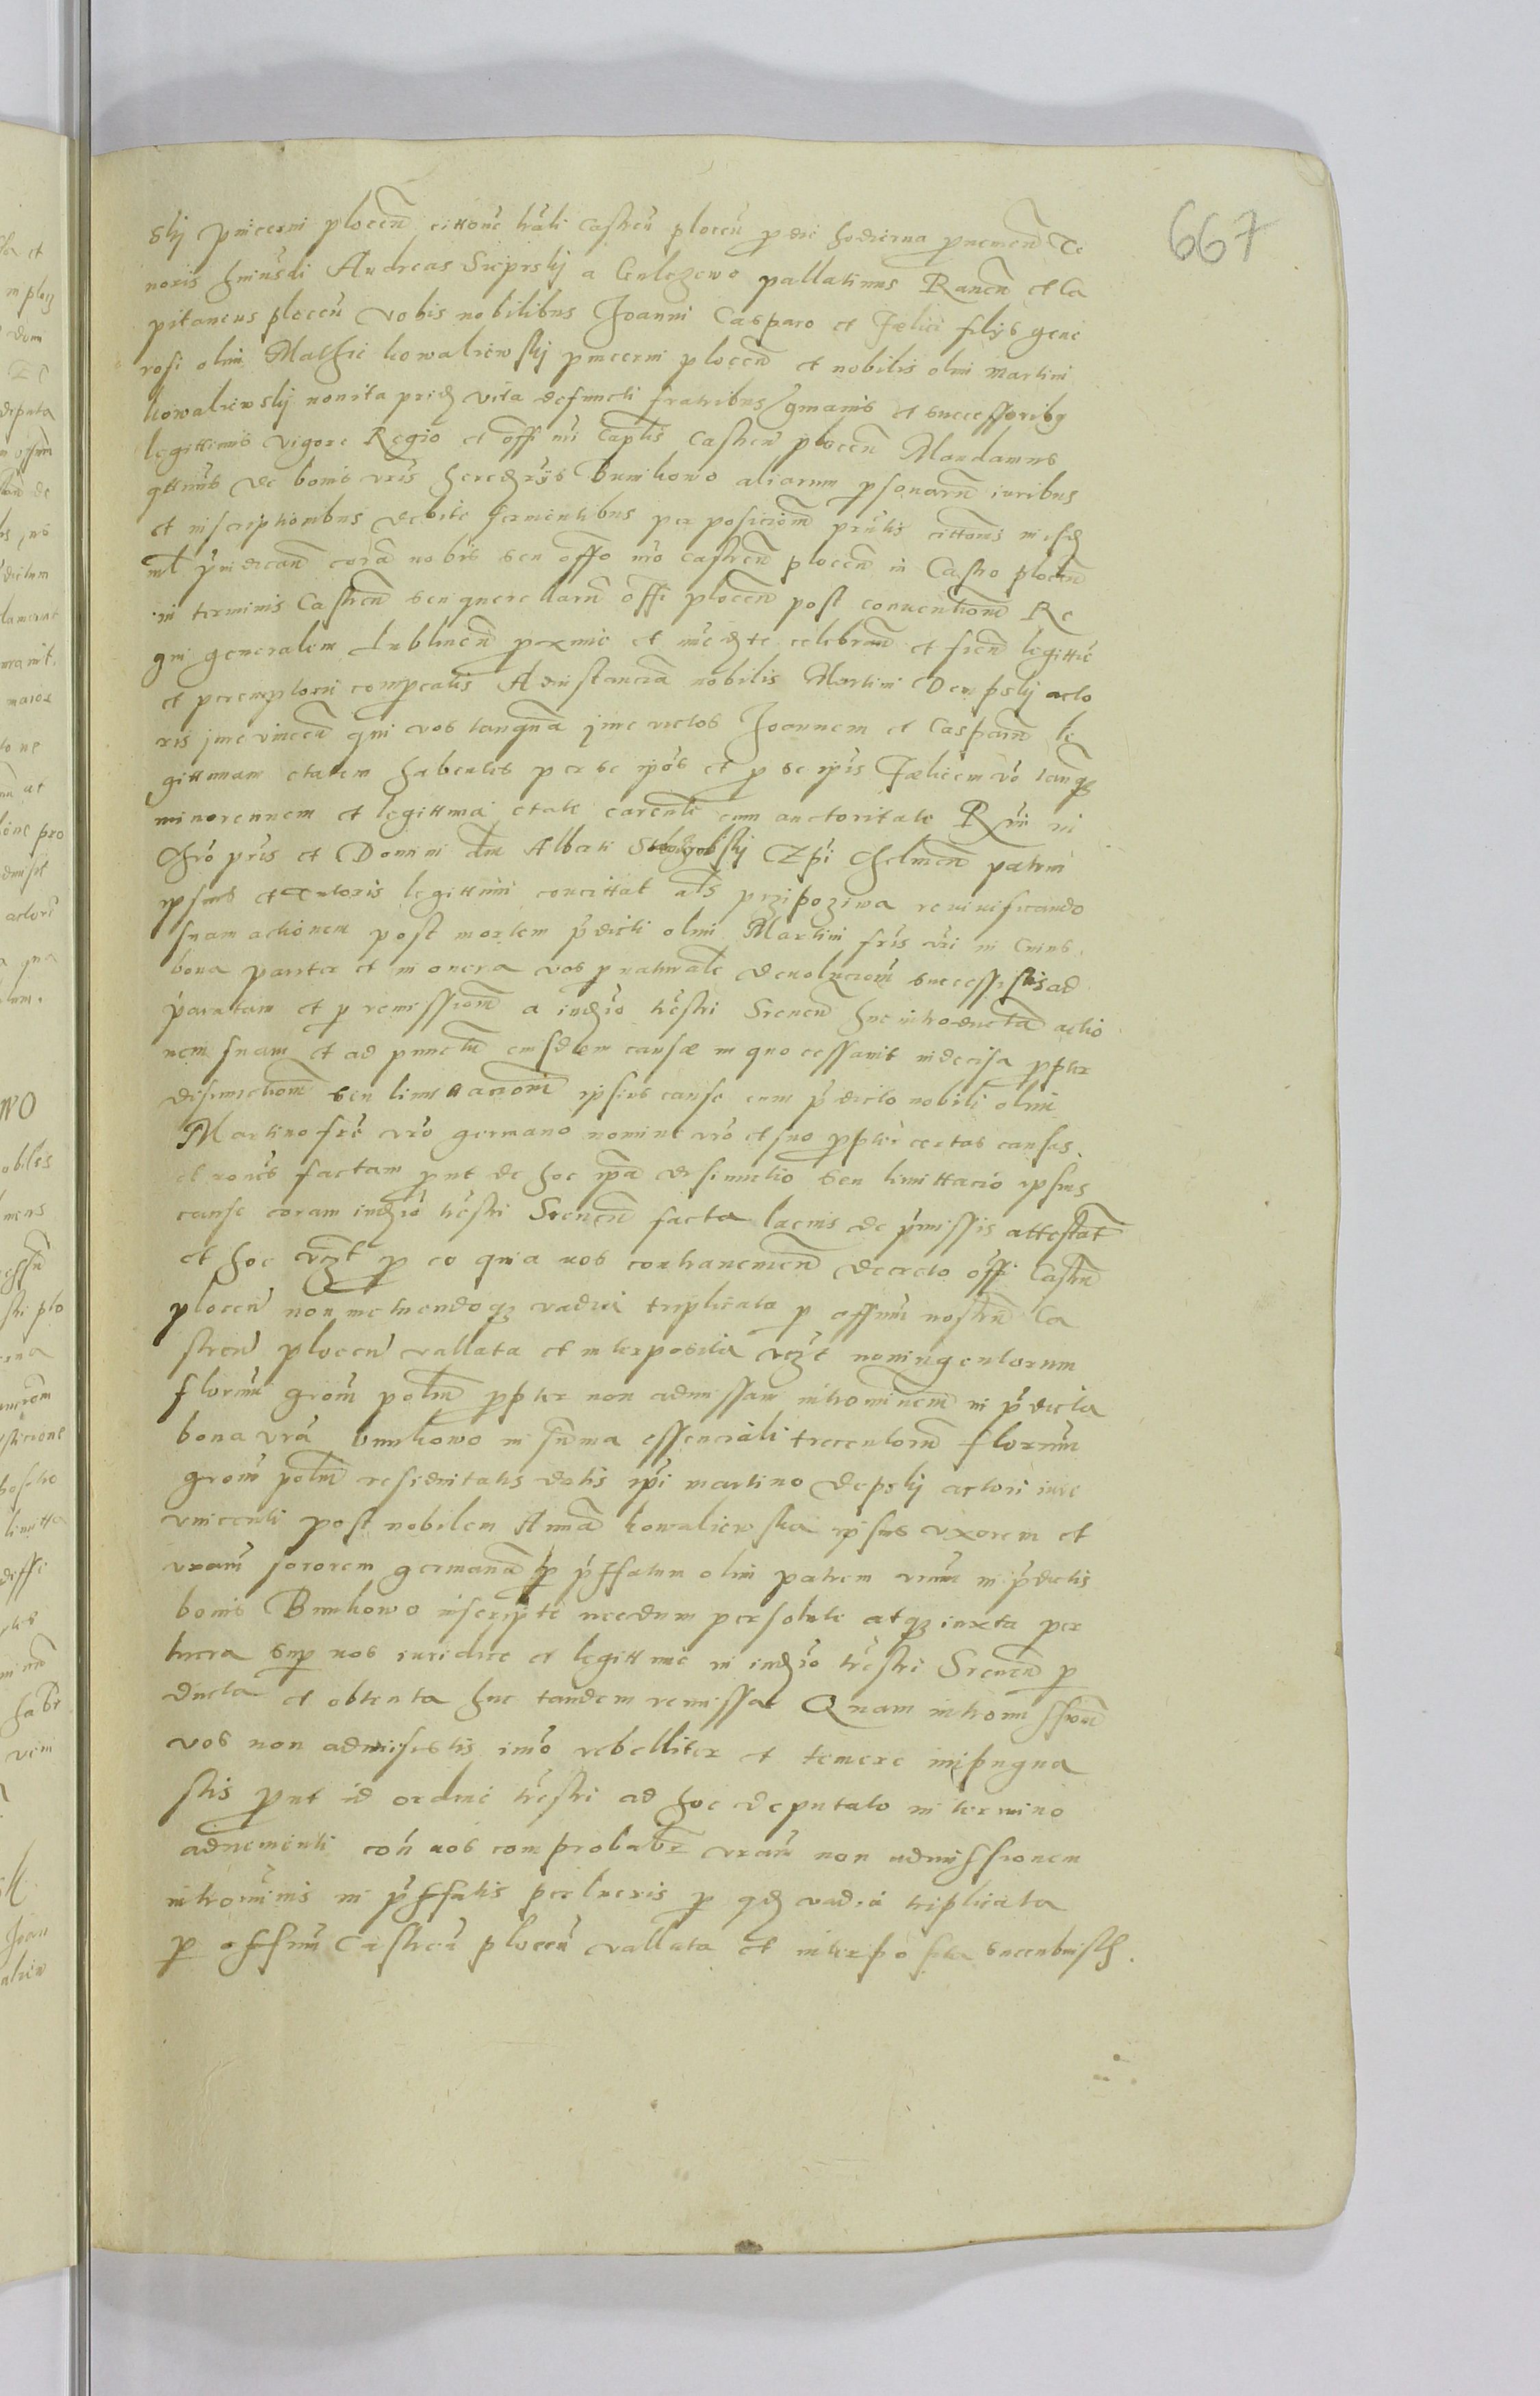 667
skÿ pincerni plocen cittone trali castren plocen p die hodierna pvenien Te
noris hmusdi Andreas Sieprskÿ a Culczewo pallatinus Ranen et Ca
pitaneus plocen vobis nobilibus Joanni Casparo et Fœlici filÿs gene
rosi olim Mathie kowaliewskÿ pincerni plocen et nobilis olim Martini
kowaliewskÿ nonita prid vita defuncti fratribus gmanis et successoribq
legittimis Vigore Regio et offi nri Captlis Castren plocen Mandamus
qttinus de bonis vris heredrÿs Bunkowo aliarum psonaru iuribus
et inscriptionibus debite servientibus per posicionem pntis cittonis in eisd
coram nobis seu offo nro castren plocen in Castro plocen
in terminis Castren seu querellaru offi plocen post conventionem Re
gni generalem Lublinen pxime et imediate celebran et fien legittime
et peremptorii compeatis Ad instancia nobilis Martini Dempskÿ acto
ris iure vincen qui vos tanqua iure victos Joannem et Casparu le
gittimam etatem habentes per se ipos et p se ipis Fœlicem vo tanq
minorennem et legittima etate carente cum auctoritate Rndi in
Chro pris et Domini dni Alberti Epi Chelmen patrui
ipsius et Tutoris legittimi concittat als przipoziwa reuiuificando
suam actionem post mortem pdicti olim Martini fris vri in cuius
bona pariter et in onera vos p naturale devolucionem successistis ad
paratam et p remissionem a iudio trestri Srenen huc introducta actio
nem suam et ad punctu eiusdem causæ in quo cessavit indecisa ppter
disiunctionem seu limitacionem ipsius cause cum pdicto nobili olim
Martino fre vro germano nomine vro et suo ppter certas causas
et rones factam put de hoc ipa disiunctio seu limittacio ipsius
cause coram iudio trestri Srenen facta lacius de pmissis attestat
et hoc vzt p eo quia vos contravenien decreto offi Castren
plocen non metuendoq vadia triplicata p offium nostru Ca
stren plocen vallata et interposita vzt noningentorum
florenu grom polm ppter non admissam intromissionem in pdicta
bona vra Bunkowo in suma essenciali trecentoru florenu
grom polm residuitatis dotis ipi martino depskÿ actori iure
vincenti post nobilem Anna kowaliewska ipsius vxorem et
vram sororem germana p pffatum olim patrem vrum in pdictis
bonis Bunkowo inscripte necdum persolute atq iuxta per
lucra sup vos iuridice et legittime in iudio trestri Srenen p
ducta et obtenta huc tandem remissa Quam intromissionem
vos non admisistis imo rebelliter et temere impugna
stis put id ordine trestri ad hoc deputato in termino
advenienti con vos comprobabr vram non admissionem
intromissionis in pffatis perlucris p qd vadia triplicata
p offium Castren plocen vallata et interposita succubuistis.